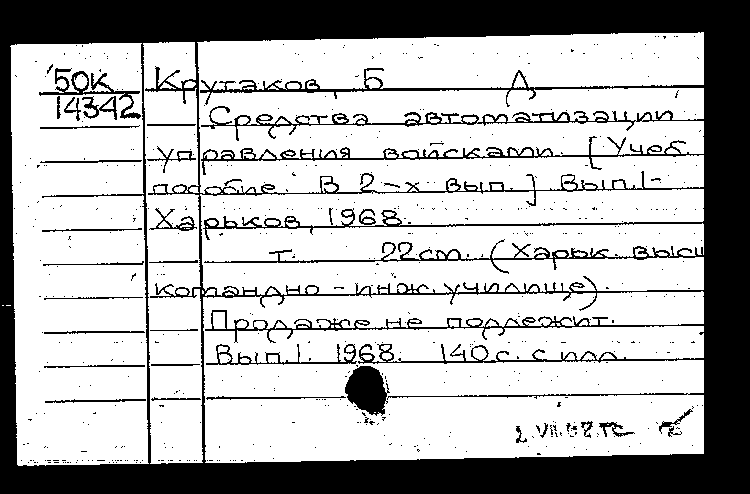 50К Крутаков, Б Д
14342 Средства автоматизации
управления войсками. [Учеб.
пособие. В 2-х вып.] Вып.1-
Харьков, 1968.
т. 22 см. (Харьк. высш
командно-инж. училище).
Продаже не подлежит.
Вып.1. 1968. 140 с. с илл.